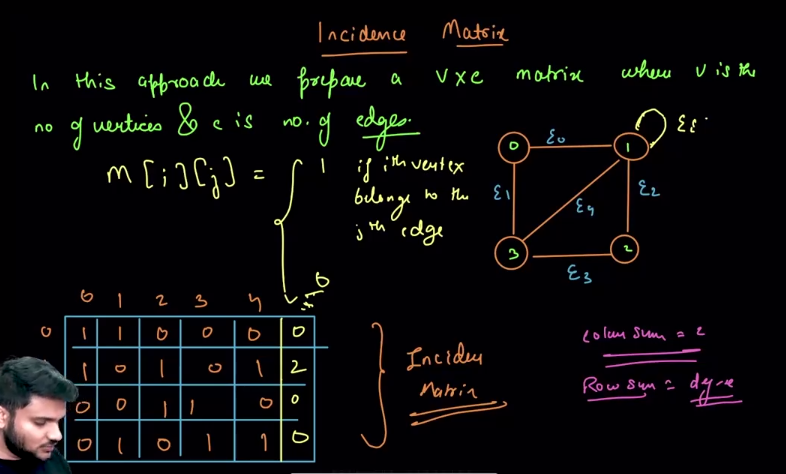 Incidence Matrix
In this approach we prepare a v x e matrix where v is the
no of vertices & e is no. of edges.
m [i] [j] = 1 if ith vertex
belong to the
jth edge
0
0 ε0 1
ε1 ε4 ε2
3 ε3 2
0 1 2 3 4
0 1 1 0 0 0 0
1 0 1 0 1 2
0 0 1 1 0 0
0 1 0 1 1 0
Matrix
Row sum =